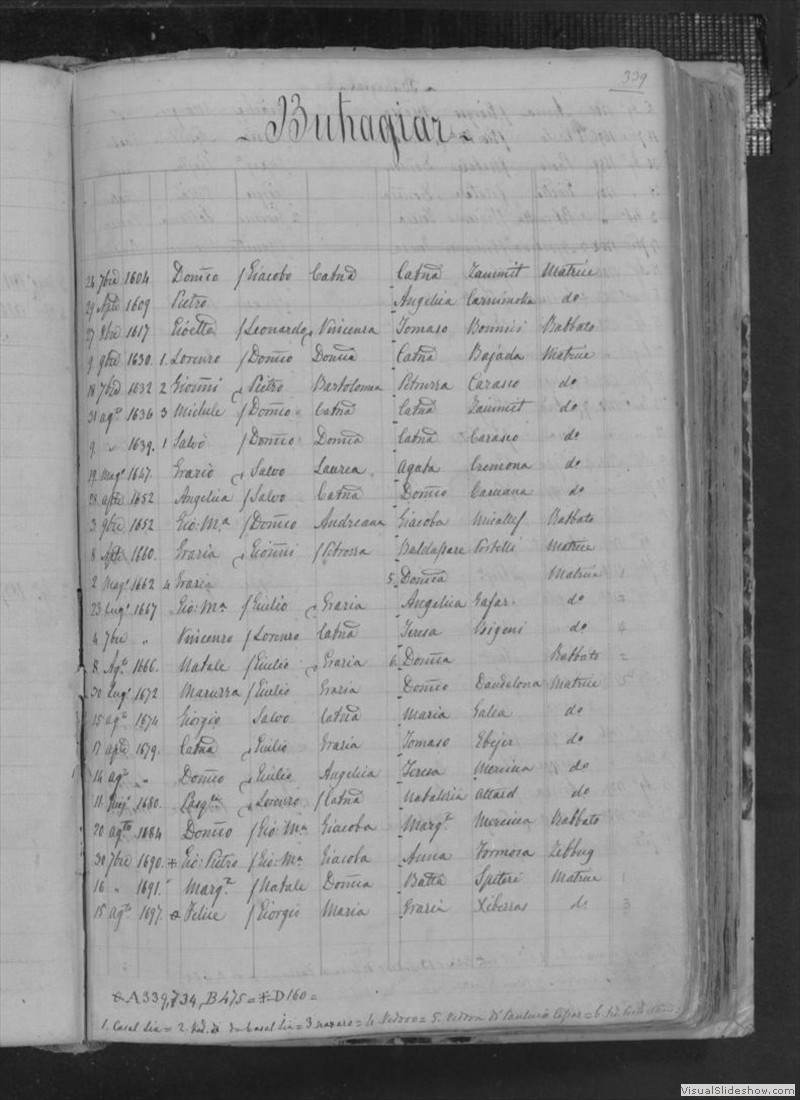 339
Buhagiar
24 7bre 1604 Domco f Giacobo Catna Catna Zammit Matrice
29 Aple 1609 Pietro Angelica Carminola do
27 8bre 1617 Gioetta f Leonardo Vincenza Tomaso Bonnici Babbato
9 9bre 1630. 1. Lorenzo f Domco Domca Catna Bajada Matrice
18 7bre 1632 2 Gioanni Pietro Bartolomea Petruzza Caruso do
31 agto 1636 3 Michele f Domco Catna Catna Zammit do
9 " 1639. 1 Salvo f Domco Domca Catna Caruso do
19 Mago 1647. Grazio Salvo Laurea Agata Cremona do
28 aple 1652 Angelica f Salvo Catna Domco Caruana do
3 9bre 1652 Gio: Ma f Domco Andreana Giacoba Micallef Babbato
8 Aple 1660. Grazia Gioanni f Petrossa Baldasare Portelli Matrice
2 Mago 1662 4 Grazia 5. Domca Matrice 1
23 Lugo 1667 Gio: Ma f Giulio Grazia Angelica Gafar do 2
4 7bre " Vincenzo f Lorenzo Catna Teresa do 4
8 Agto 1666. Natale f Giulio Grazia 6. Domca Babbato 2
30 Lugo 1672 Maruzza f Giulio Grazia Domco Dandelona Matrice
15 agto 1674 Giorgio Salvo Catna Maria Galea do
17 aple 1679. Catna Giulio Grazia Tomaso Ebejer do
14 agto " Domco Giulio Angelica Teresa Mercieca do
11 1680. Lorenzo f Catna Natalizia Attard do
20 agto 1684 Domco f Gio: Ma Giacoba Margta Mercieca Babbato
30 7bre 1690. + Gio: Pietro f Gio: Ma Giacoba Anna Formosa Zebbug
16 " 1691. Margta f Natale Domca Batta Spiteri Matrice 1
15 agto 1697. Felice f Giorgio Maria Grazia Xiberras do 3
A 339, 734, B 475 = D 160 =
1. Casal Lia = 2. Ved. di Casal Lia = 3 = 4. Vedovo = 5. Vedova di = 6.
VisualSlideshow.com